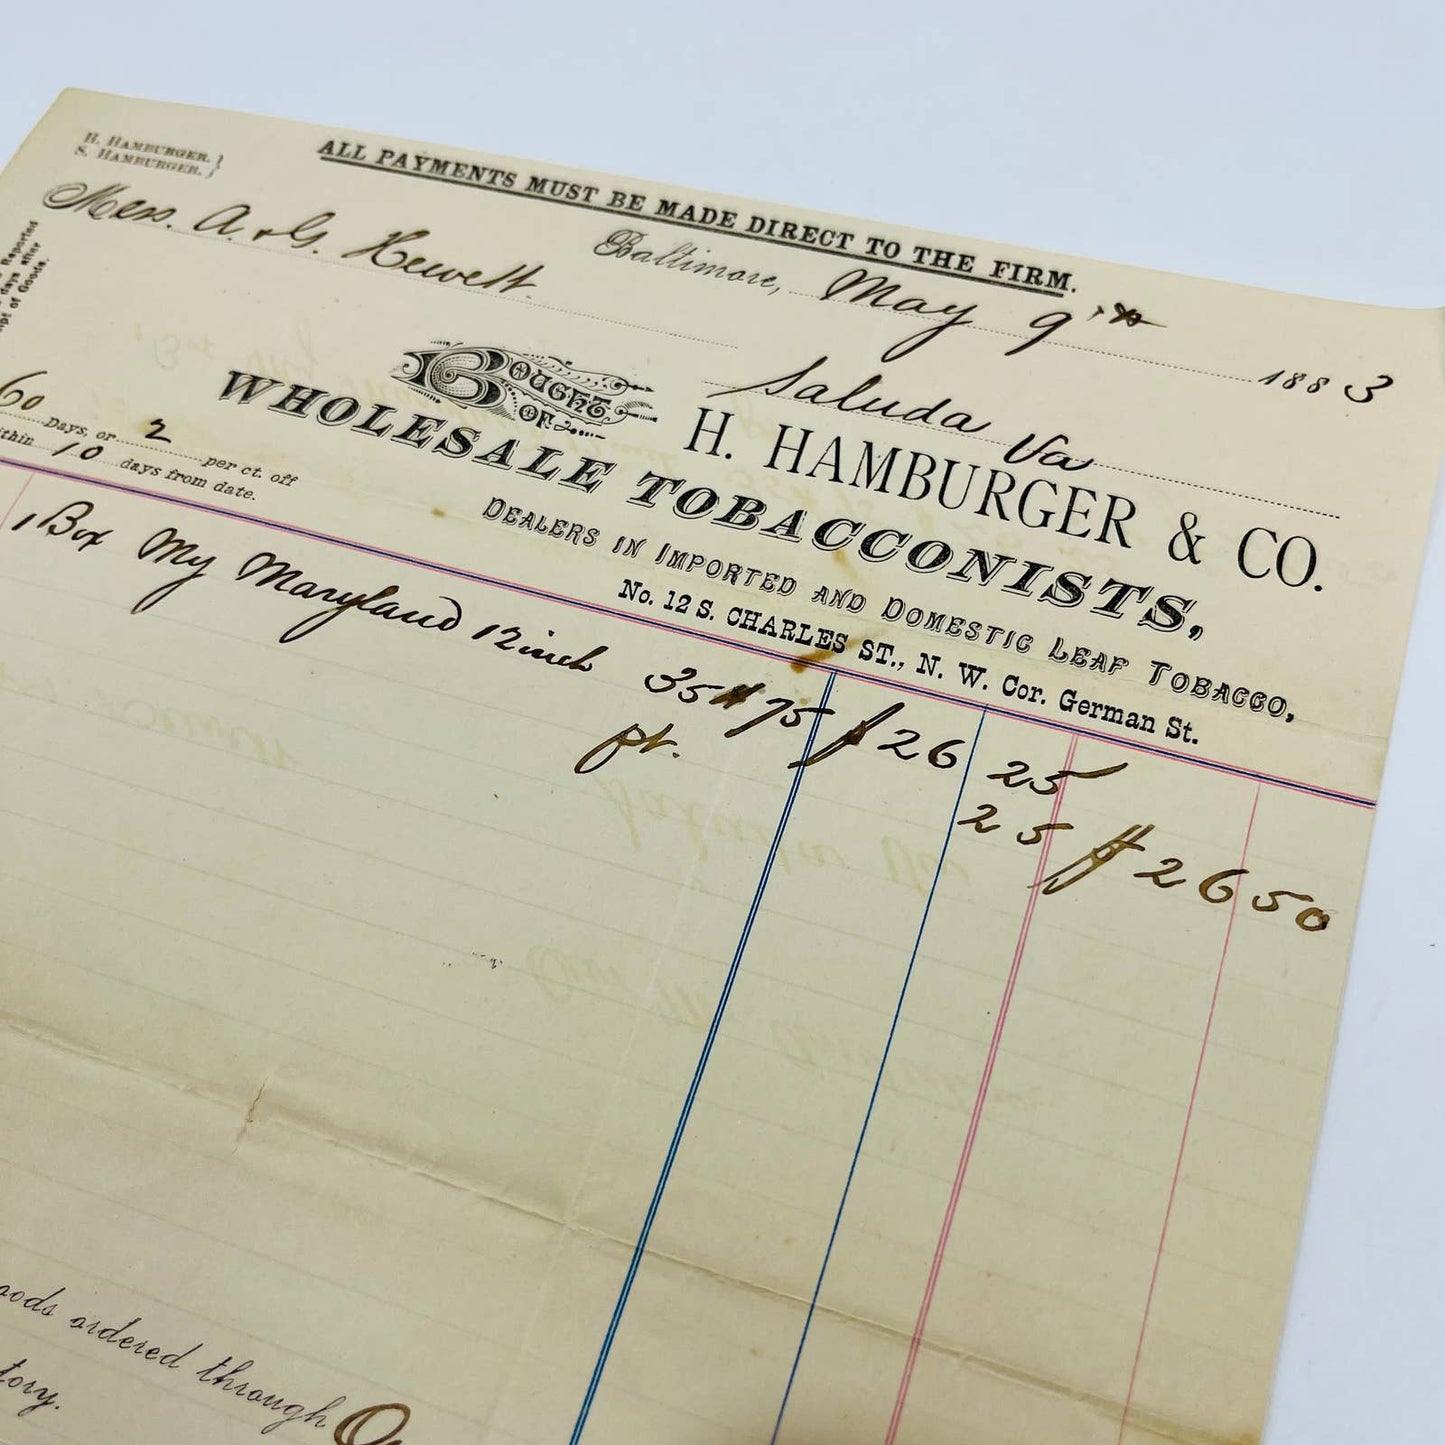 H. HAMBURGER.
S. HAMBURGER.
ALL PAYMENTS MUST BE MADE DIRECT TO THE FIRM.
Baltimore, May 9th 1883
Mess. A. & G. Hewett.
Saluda Va
Reported
days after
of Goods.
BOUGHT OF H. HAMBURGER & CO.
WHOLESALE TOBACCONISTS,
DEALERS IN IMPORTED AND DOMESTIC LEAF TOBACCO,
No. 12 S. CHARLES ST., N. W. Cor. German St.
60 Days, or 2 per ct. off
10 days from date.
1 Box My Maryland 12 inch 35 # 75 $ 26 25
25 $ 26 50
ordered through